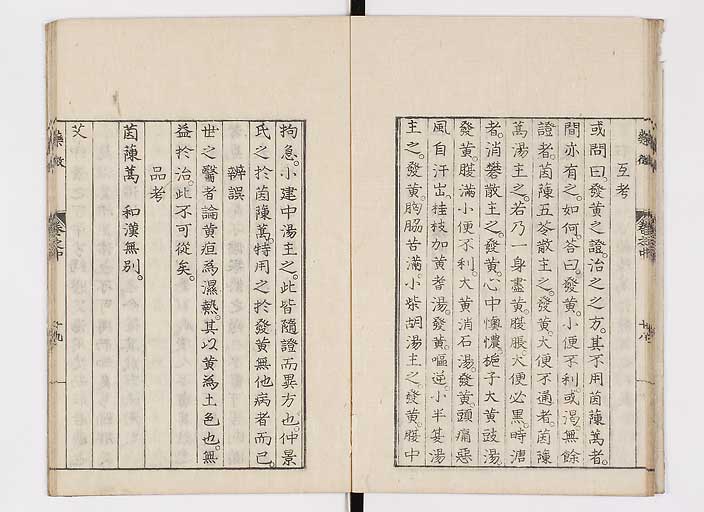 互考
或問曰。發黄之證。治之之方。其不用茵蔯蒿者。
間亦有之。如何。答曰。發黄。小便不利或渴。無餘
證者。茵蔯五苓散主之。發黄。大便不通者。茵蔯
蒿湯主之。若乃一身盡黄。腹脹。大便必黒。時溏
者。消礬散主之。發黄。心中懊憹。梔子大黄豉湯。
發黄。腹滿小便不利。大黄消石湯。發黄。頭痛惡
風自汗出。桂枝加黄耆湯。發黄。嘔逆。小半夏湯
主之。發黄。胸脇苦滿。小柴胡湯主之。發黄。腹中
藥徴
卷之中
十八
拘急。小建中湯主之。此皆隨證而異方也。仲景
氏之於茵蔯蒿。特用之於發黄無他病者而已。
辨誤
世之醫者論黄疸為濕熱。其以黄為土色也。無
益於治。此不可從矣。
品考
茵蔯蒿 和漢無別。
艾
藥徴
卷之中
十九